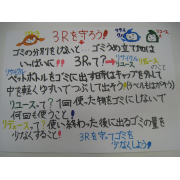 3Rを守ろう!
ゴミの分別をしないと…ゴミうめ立て地は
いっぱいに!! 3Rって?→リサイクル
リユース
リデュース のこと
リサイクル
ペットボトルをゴミに出す時はキャップを外して
中を軽くすすいでつぶして出そう(ラベルもはがそう)
リユースって?1回使った物をゴミにしないで
何回も使うこと!
リデュースって?使い終わった後に出るゴミの量を
少なくすること! 3Rを守ってゴミを
少なくしよう!